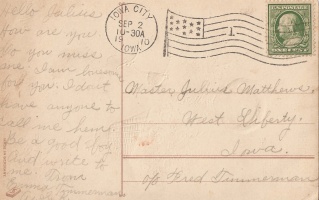 Hello Julius
How are you
do you miss
me. I am lonesome
for you. I don't
have anyone to
call me hemp.
Be a good boy
and write to
me. From
Emma Timmerman
IOWA CITY
SEP 2
10-30A
1910
IOWA
1
U.S. POSTAGE
Master Julius Matthews
West Liberty,
Iowa.
c/o Fred Timmerman